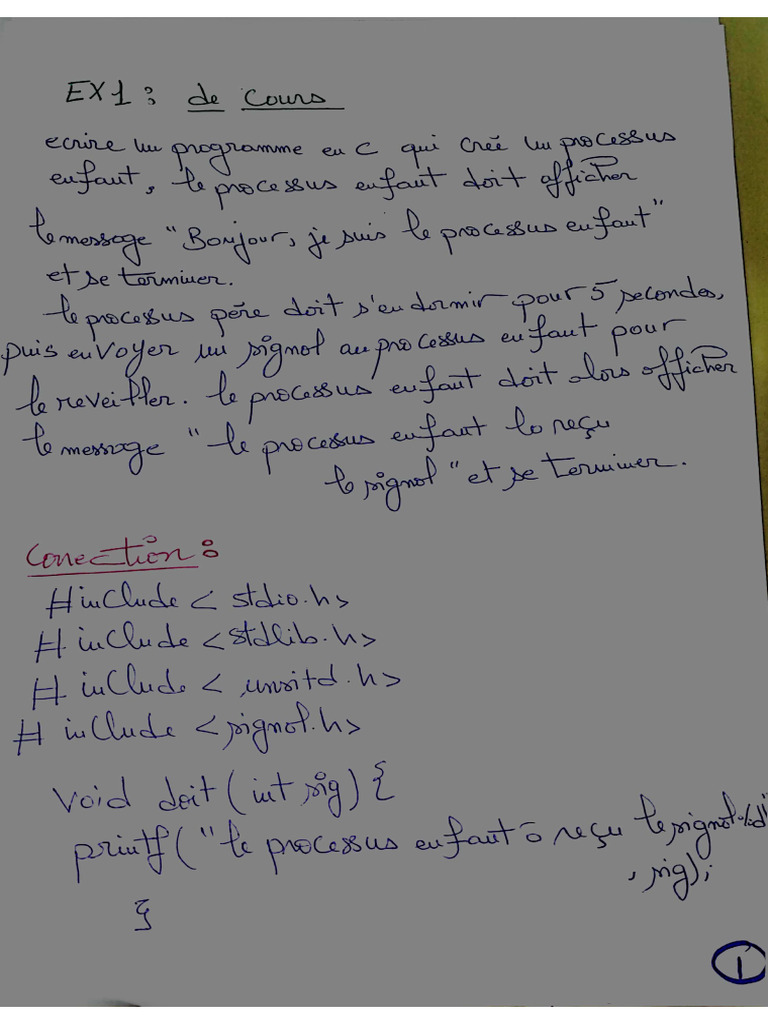 EX1: de cours
ecrire un programme en C qui crée un processus
enfant, le processus enfant doit afficher
le message "Bonjour, je suis le processus enfant"
et se terminer.
le processus père doit s'endormir pour 5 secondes,
puis envoyer un signal au processus enfant pour
le reveiller. le processus enfant doit alors afficher
le message "le processus enfant la reçu
le signal" et se terminer.
Correction:
#include < stdio.h>
# include <stdlib.h>
# include < unsitd.h>
# include <signal.h>
void doit (int sig) {
printf ("le processus enfant a reçu le signal %d"
, sig);
}
1